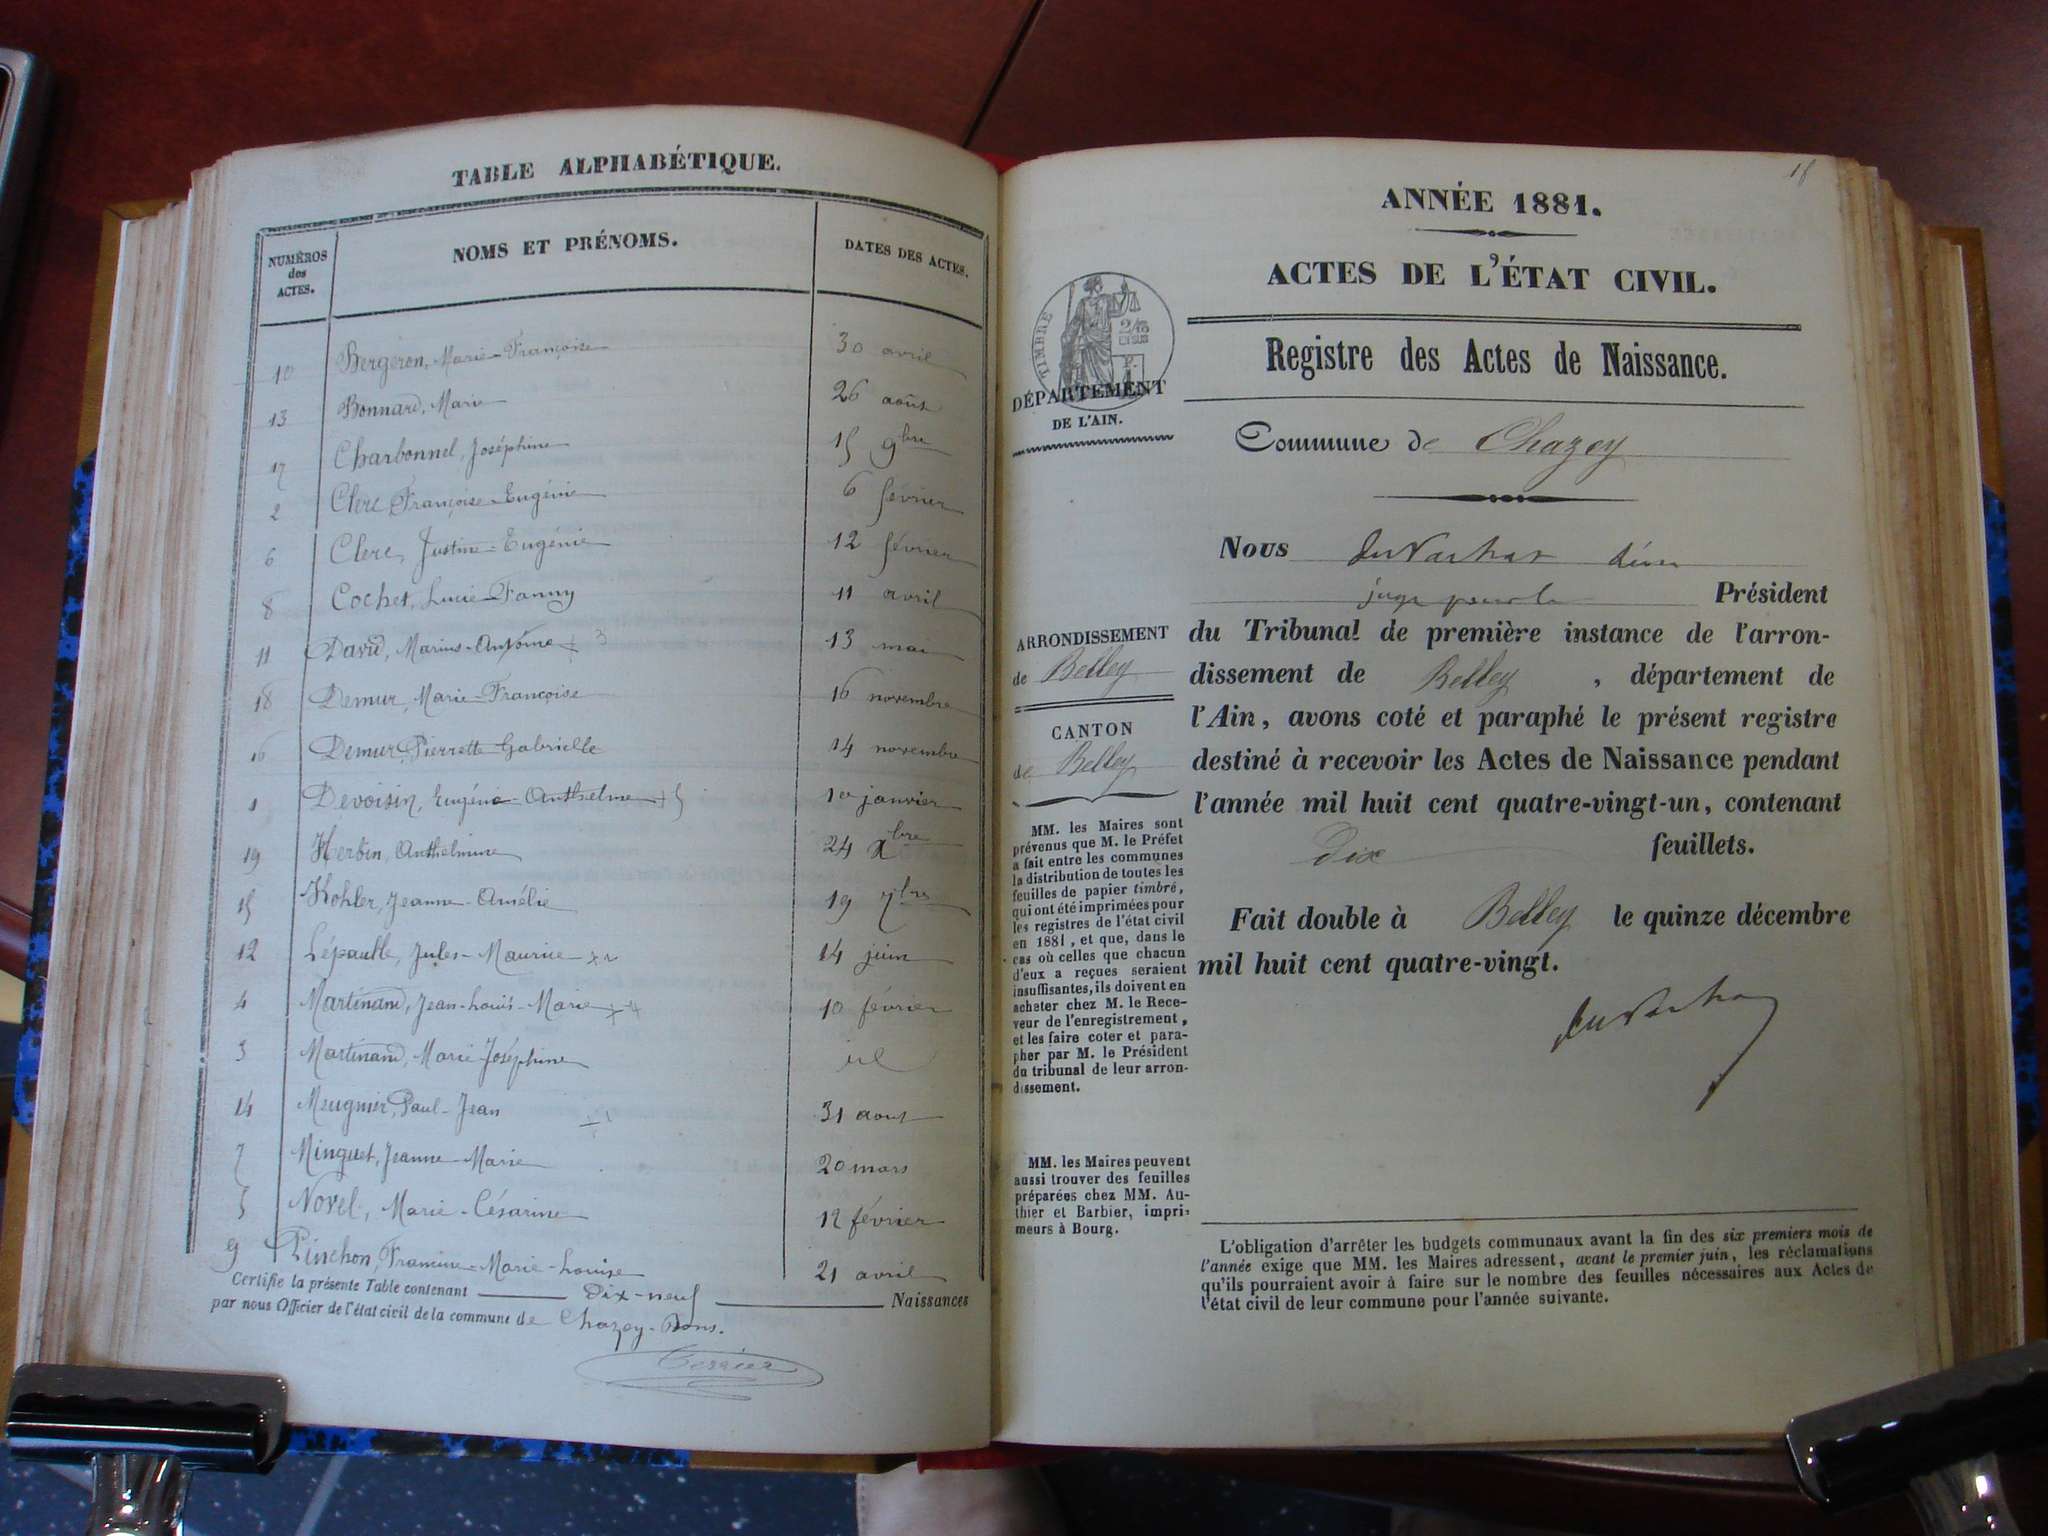 TABLE ALPHABÉTIQUE.
NUMÉROS des ACTES. NOMS ET PRÉNOMS. DATES DES ACTES.
10 Bergeron, Marie-Françoise 30 avril
13 Bonnard, Marie 26 août
17 Charbonnel, Joséphine 15 9bre
2 Clerc Françoise-Eugénie 6 février
6 Clerc, Justine-Eugénie 12 février
8 Cochet, Lucie-Fanny 11 avril
11 David, Marius-Antoine + 3 13 mai
18 Demur, Marie-Françoise 16 novembre
16 Demur, Pierrette Gabrielle 14 novembre
1 Devoisin, Eugénie-Anthelme + 5 1er janvier
19 Herdin, Anthelmine 24 Xbre
15 Kohler, Jeanne-Amélie 19 7bre
12 Lépaulle, Jules-Maurice 14 juin
4 Martinand, Jean-Louis-Marie + 4 10 février
3 Martinand, Marie Joséphine id
14 Meugnier, Paul-Jean + 1 31 aout
7 Minguet, Jeanne-Marie 20 mars
5 Novel, Marie-Césarine 12 février
9 Pinchon, Francine-Marie-Louise 21 avril
Certifie la présente Table contenant Dix-neuf Naissances
par nous Officier de l'état civil de la commune de Chazey-Bons.
Terrier
18
ANNÉE 1881.
ACTES DE L'ÉTAT CIVIL.
TIMBRE
2/10 EN SUS
Registre des Actes de Naissance.
DÉPARTEMENT
DE L'AIN.
Commune de Chazey
Nous
juge pour le Président
du Tribunal de première instance de l'arron-
dissement de Belley, département de
l'Ain, avons coté et paraphé le présent registre
destiné à recevoir les Actes de Naissance pendant
l'année mil huit cent quatre-vingt-un, contenant
dix feuillets.
Fait double à Belley le quinze décembre
mil huit cent quatre-vingt.
ARRONDISSEMENT
de Belley
CANTON
de Belley
MM. les Maires sont
prévenus que M. le Préfet
a fait entre les communes
la distribution de toutes les
feuilles de papier timbré,
qui ont été imprimées pour
les registres de l'état civil
en 1881, et que, dans le
cas où celles que chacun
d'eux a reçues seraient
insuffisantes, ils doivent en
acheter chez M. le Rece-
veur de l'enregistrement,
et les faire coter et para-
pher par M. le Président
du tribunal de leur arron-
dissement.
MM. les Maires peuvent
aussi trouver des feuilles
préparées chez MM. Au-
thier et Barbier, impri-
meurs à Bourg.
L'obligation d'arrêter les budgets communaux avant la fin des six premiers mois de
l'année exige que MM. les Maires adressent, avant le premier juin, les réclamations
qu'ils pourraient avoir à faire sur le nombre des feuilles nécessaires aux Actes de
l'état civil de leur commune pour l'année suivante.